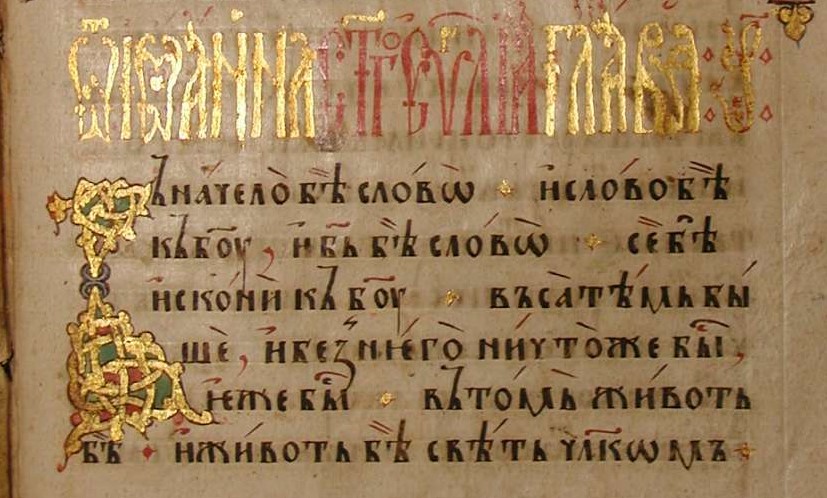 Ѿ ІѠАННА СТ҃ГО ЕѴⷢ҇ЛІА ГЛАВА : А҃
Въ наче́ло̀ бѣ̀ сло́вѡ и сло́во бѣ̀
къ бо҃у, и б҃ь бѣ̀ сло́вѡ сѐ бѣ̀
и́скони къ бо҃у въса тѣ́мь бы́
шѐ, и без́ н҄е́го̀ ничто̀же бы̀,
и́еже бы̀ въ то́мь живо́ть
бѣ̀ и живо́ть бѣ̀ свѣ́ть чл҃кѡмъ